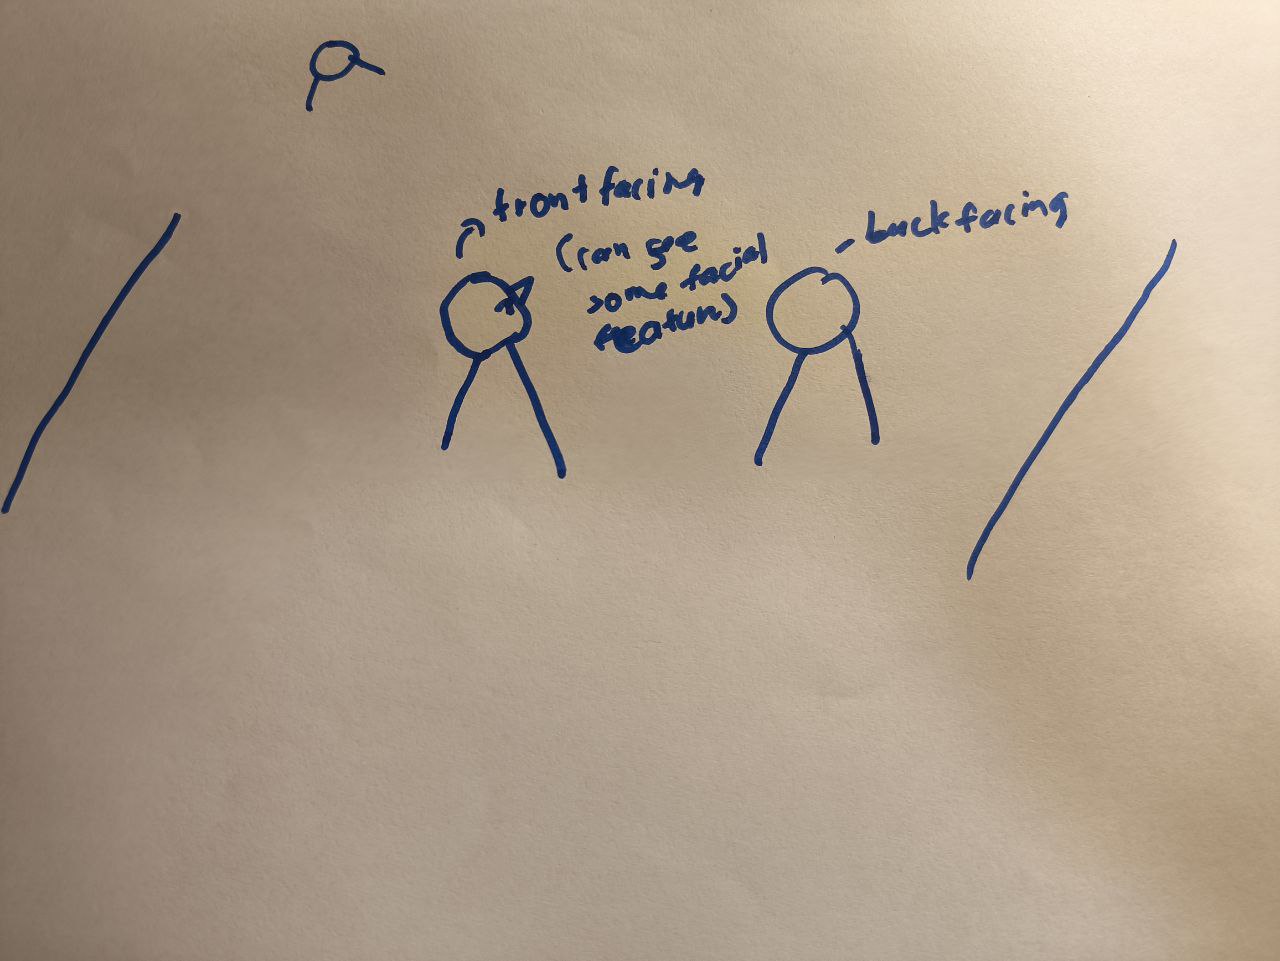 front facing
(can see
some facial
feature)
back facing